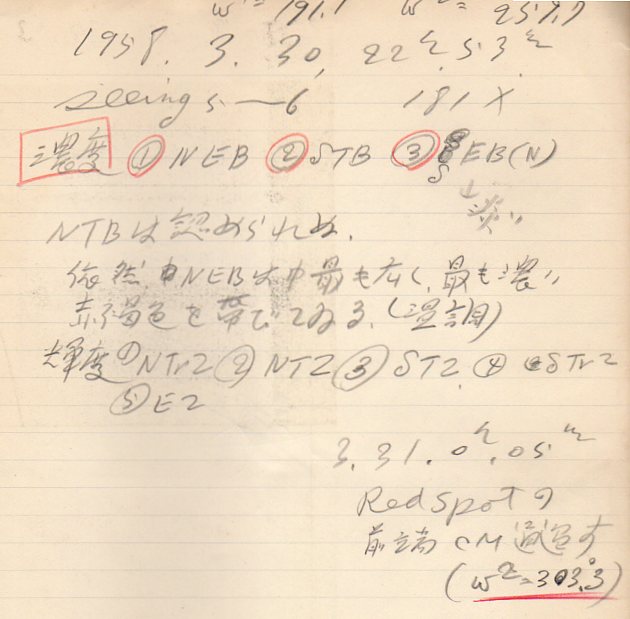 ω¹= 191.1 ω²= 257.7
1958. 3. 30, 22ʰ.53ᵐ
seeing 5—6 181×
濃度 ① NEB ② STB ③ SEB(N)
↓淡い
NTBは認められぬ.
依然NEBは巾最も広く、最も濃い
赤褐色を帯びてゐる.(温調)
輝度 ① NTrZ ② NTZ ③ STZ. ④ STrZ
⑤ EZ
3.31. 0ʰ.05ᵐ
Red Spotの
前端 CM通過す
(ω²=303.°3)